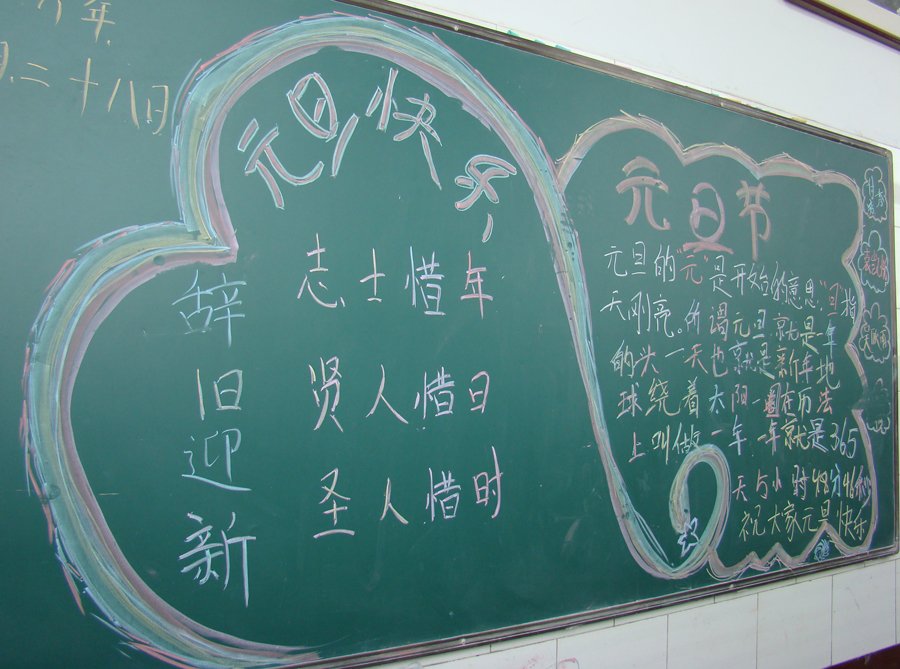 年
二十八日
元旦快乐
辞旧迎新
志士惜年
贤人惜日
圣人惜时
元旦节
元旦的"元"是开始的意思"旦"指
天刚亮。所谓元旦就是一年
的头一天也就是新年地
球绕着太阳一圈在历法
上叫做一年一年就是365
天5小时48分46秒
祝大家元旦快乐